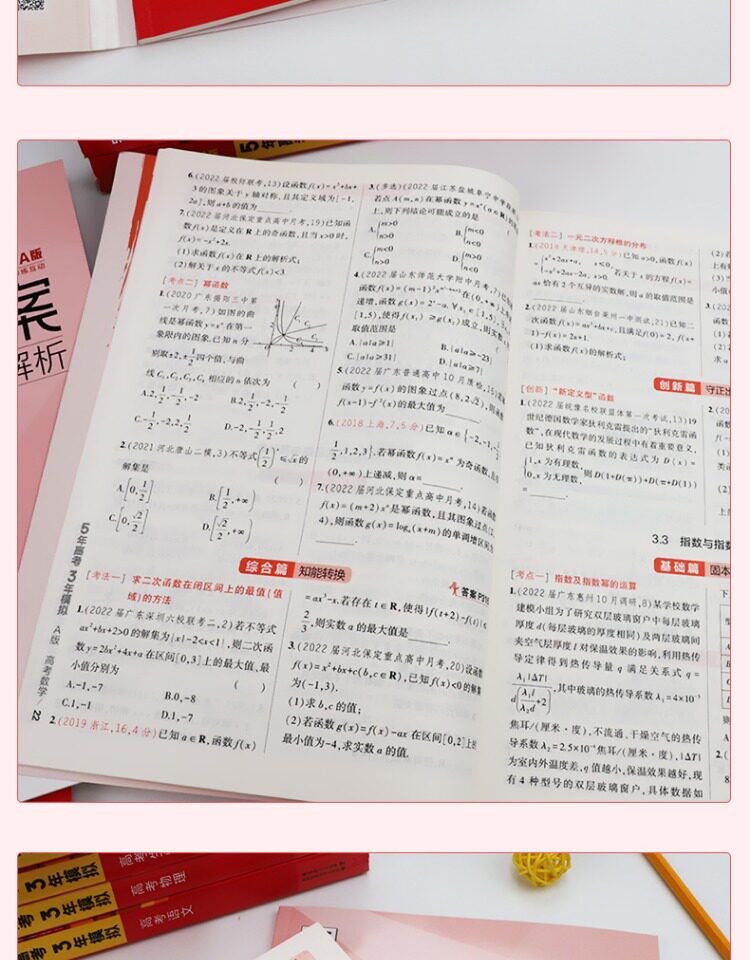 5年高
A版
讲练互动
案
解析
6.(2022届校际联考,13)设函数f(x)=x²+bx+
3的图象关于y轴对称,且其定义域为[-1,
2a],则a+b的值为
7.(2022届河北保定重点高中月考,19)已知函
数f(x)是定义在R上的奇函数,且当x>0时,
f(x)=-x²+2x.
(1)求函数f(x)在R上的解析式;
(2)解关于x的不等式f(x)<3.
[考点二] 幂函数
1.(2020广东揭阳三中第
一次月考,7)如图的曲
线是幂函数y=xⁿ在第一
象限内的图象.已知n分
别取±2,±1/2四个值,与曲
线C₁,C₂,C₃,C₄相应的n依次为( )
A.2,1/2,-1/2,-2
B.2,1/2,-2,-1/2
C.-1/2,-2,2,1/2
D.-2,-1/2,1/2,2
2.(2021河北唐山二模,3)不等式(1/2)ˣ≤√x的
解集是( )
A.[0,1/2]
B.[1/2,+∞)
C.[0,√2/2]
D.[√2/2,+∞)
3.(多选)(2022届江苏盐城阜宁中学
若点A(m,n)在幂函数y=xᵃ(a∈R)的
上,则下列结论可能成立的是
A.{m>0 n>0
B.{m<0 n<0
C.{m<0 n>0
D.{m>0 n<0
4.(2022届山东师范大学附中月考,7)
函数f(x)=(m-1)²
在(0,+∞)上单
递增,函数g(x)=2ˣ-a,∀x₁∈[1,5),
[1,5),使得f(x₁)≥g(x₂)成立,则实数
取值范围是
A.{a|a≥1}
B.{a|a≥-23}
C.{a|a≥31}
D.{a|a≥7}
5.(2022届广东普通高中10月质检,15)
函数y=f(x)的图象过点(8,2√2),则函
f(x-1)-f²(x)的最大值为
6.(2018上海,7,5分)已知α∈{-2,-1,
1/2,1,2,3}.若幂函数f(x)=xᵅ为奇函数,且
(0,+∞)上递减,则α=
7.(2022届河北保定重点高中月考,14)若函
f(x)=(m+2)xᵃ是幂函数,且其图象过点(2,
4),则函数g(x)=logₐ(x+m)的单调增区间为
综合篇 知能转换
答案P316
[考法一] 求二次函数在闭区间上的最值(值
域)的方法
1.(2022届广东深圳六校联考二,2)若不等式
ax²+bx+2>0的解集为{x|-2<x<1},则二次函
数y=2bx²+4x+a在区间[0,3]上的最大值、最
小值分别为( )
A.-1,-7
B.0,-8
C.1,-1
D.1,-7
2.(2019浙江,16,4分)已知a∈R,函数f(x)
=ax³-x.若存在t∈R,使得|f(t+2)-f(t)|≤
2/3,则实数a的最大值是
3.(2022届河北保定重点高中月考,20)设函数
f(x)=x²+bx+c(b,c∈R),已知f(x)<0的解集
为(-1,3).
(1)求b,c的值;
(2)若函数g(x)=f(x)-ax在区间[0,2]上的
最小值为-4,求实数a的值.
5年高考3年模拟 A版 高考数学/22
[考法二] 一元二次方程根的分布
1.(2018天津理,14,5分)已知a>0,函数f(x)
={x²+2ax+a, x≤0, -x²+2ax-2a, x>0. 若关于x的方程f(x)=
ax恰有2个互异的实数解,则a的取值范围是
2.(2022届山东烟台莱州一中测试,21)已知二
次函数f(x)=ax²+bx+c,且满足f(0)=2,f(x+
1)-f(x)=2x+1.
(1)求函数f(x)的解析式;
创新篇 守正出
[创新] “新定义型”函数
1.(2022届皖豫名校联盟体第一次考试,13)19
世纪德国数学家狄利克雷提出的“狄利克雷函
数”,在现代数学的发展过程中有着重要意义,
已知狄利克雷函数的表达式为D(x)=
{1,x为有理数, 0,x为无理数, 则D(1+D(π))+D(π+D(1))
=
3.3 指数与指数
基础篇 固本
[考点一] 指数及指数幂的运算
1.(2022届广东惠州10月调研,8)某学校数学
建模小组为了研究双层玻璃窗户中每层玻璃
厚度d(每层玻璃的厚度相同)及两层玻璃间
夹空气层厚度l对保温效果的影响,利用热传
导定律得到热传导量q满足关系式q=
λ₁|ΔT|/d(λ₁l/λ₂d+2),其中玻璃的热传导系数λ₁=4×10⁻³
焦耳/(厘米·度),不流通、干燥空气的热传
导系数λ₂=2.5×10⁻⁴焦耳/(厘米·度),|ΔT|
为室内外温度差,q值越小,保温效果越好,现
有4种型号的双层玻璃窗户,具体数据如
3年模拟
高考物理
考 3年模拟
高考语文
高考 3年模拟